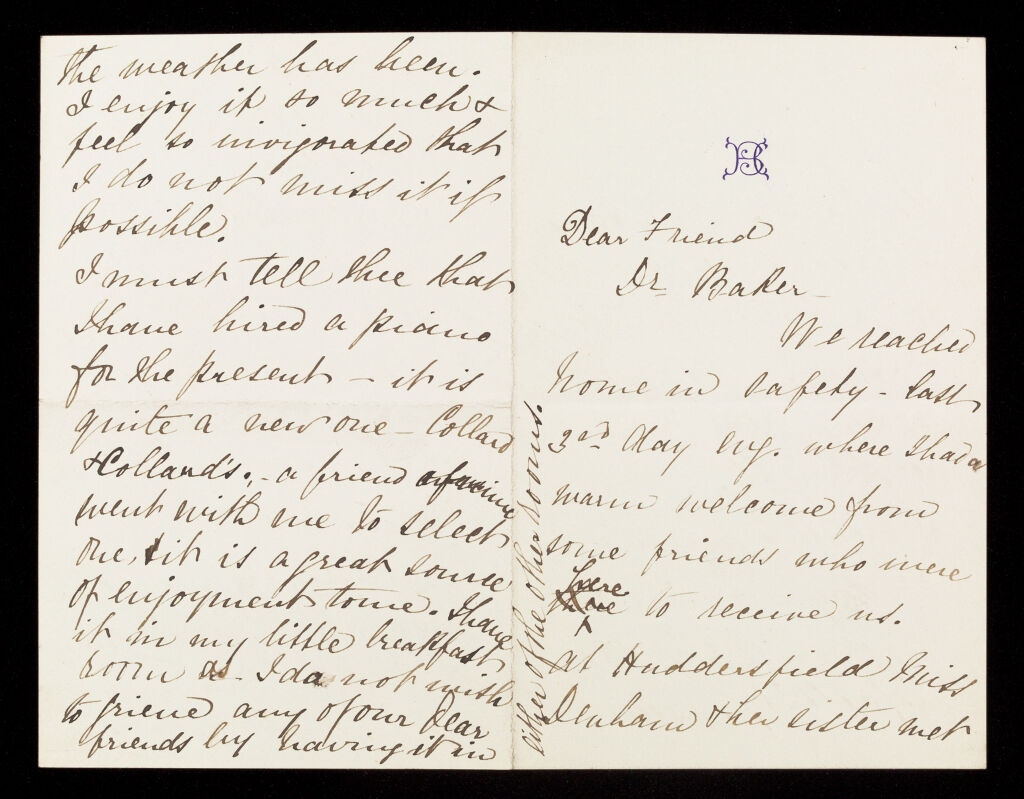 the weather has been.
I enjoy it so much &
feel so invigorated that
I do not miss it if
possible.
I must tell thee that
I have hired a piano
for the present – it is
quite a new one – Collard
& Collard's. – a friend of mine
went with me to select
one, & it is a great source
of enjoyment to me. I have
it in my little breakfast
room as I do not wish
to grieve any of our Dear
friends by having it in
either of the other rooms.
Dear Friend
Dr Baker –
We reached
home in safety – last
3rd day evg. where I had a
warm welcome from
some friends who were
here to receive us.
At Huddersfield Miss
Denham & her sister met